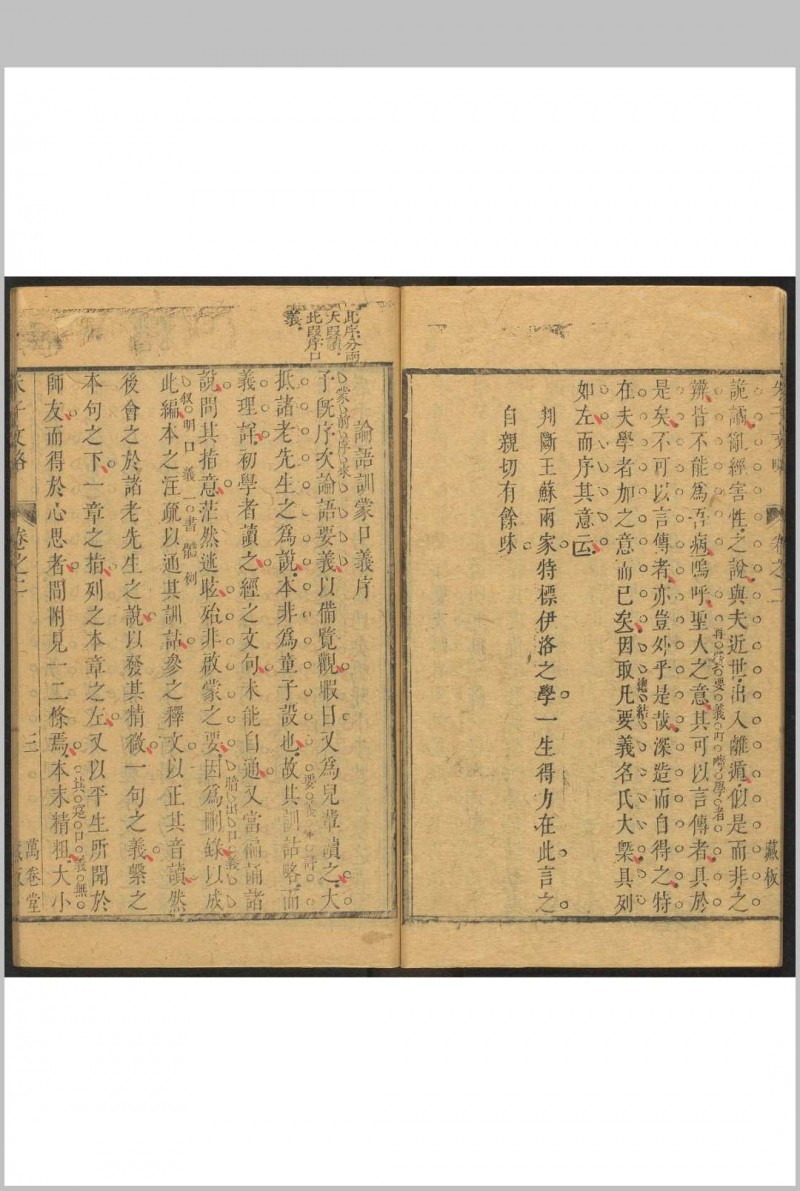 詭譎亂經害性之說與夫近世出入離遁似是而非之
辨皆不能爲吾病嗚呼聖人之意其可以言傳者具於
是矣不可以言傳者亦豈外乎是哉深造而自得之特
在夫學者加之意而已矣因取凡要義名氏大槩具列
總結
如左而序其意云
判斷王蘇兩家特標伊洛之學一生得力在此言之
自親切有餘味
卷之二
藏板
此序分兩
大段讀
此段序口
義
論語訓蒙口義序
予旣序次論語要義以備覽觀暇日又爲兒輩讀之大
抵諸老先生之爲說本非爲童子設也故其訓詁略而
義理詳初學者讀之經之文句未能自通又當徧誦諸
說問其指意茫然迷眩殆非啟蒙之要因爲刪錄以成
此編本之注疏以通其訓詁參之釋文以正其音讀然
叙明口義一書體例
後會之於諸老先生之說以發其精微一句之義繫之
本句之下一章之指列之本章之左又以平生所聞於
師友而得於心思者間附見一二條焉本末精粗大小
朱子文略
卷之二
三
萬卷堂
藏板